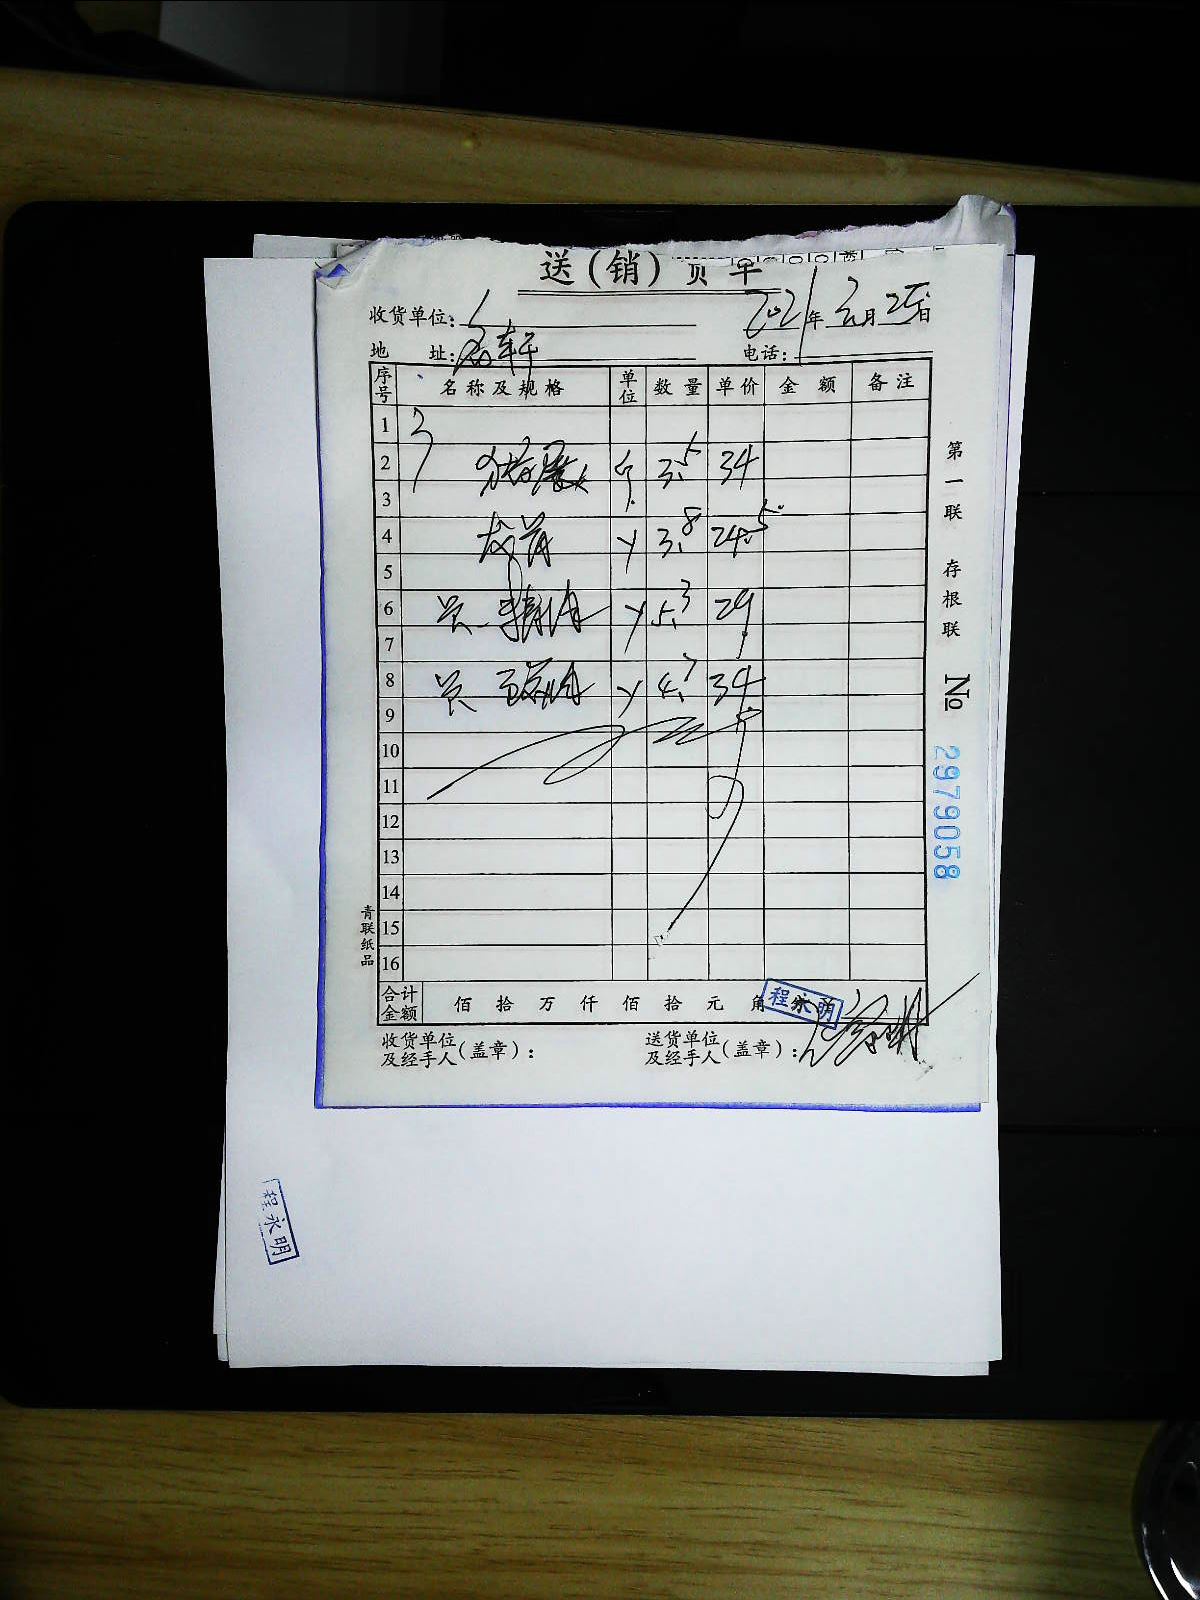 送（销）货单
收货单位：
2021年2月25日
地 址：
电话：
序号 名称及规格 单位 数量 单价 金额 备注
1
2 3.5 34
3
4 3.8 24.5
5
6 5.3 29
7
8 4.7 34
9
10
11
12
13
14
15
16
合计金额 佰 拾 万 仟 佰 拾 元 角
程永明
收货单位及经手人（盖章）：
送货单位及经手人（盖章）：
第一联 存根联
No 2979058
青联纸品
程永明